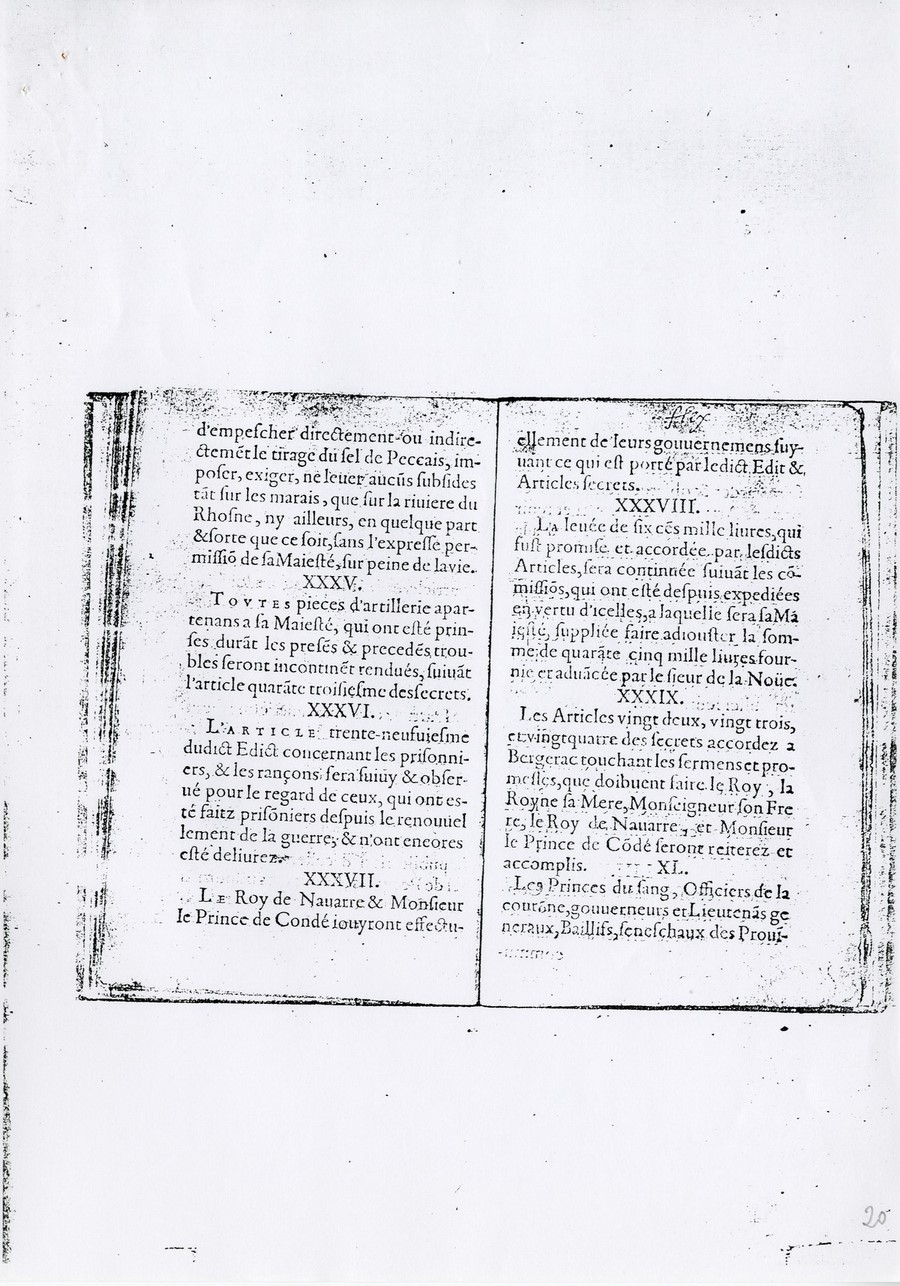 d'empeſcher directement ou indire-
ctemēt le tirage du ſel de Peccais, im-
poſer, exiger, ne leuer aucūs ſubſides
tāt ſur les marais, que ſur la riuiere du
Rhoſne, ny ailleurs, en quelque part
& ſorte que ce ſoit, ſans l'expreſſe per-
miſſiō de ſa Maieſté, ſur peine de la vie.
XXXV.
TOVTES pieces d'artillerie apar-
tenans a ſa Maieſté, qui ont eſté prin-
ſes durāt les preſēs & precedēs trou-
bles ſeront incontinēt rendués, ſuiuāt
l'article quarāte troiſieſme des ſecrets.
XXXVI.
L'ARTICLE trente-neufuieſme
dudict Edict concernant les priſonni-
ers, & les rançons ſera ſuiuy & obſer-
ué pour le regard de ceux, qui ont eſ-
té faitz priſōniers deſpuis le renouuel
lement de la guerre, & n'ont encores
eſté deliurez.
XXXVII.
LE Roy de Nauarre & Monſieur
le Prince de Condé iouyront effectu-
ellement de leurs gouuernemens ſuy-
uant ce qui eſt porté par ledict Edit &
Articles ſecrets.
XXXVIII.
La leuée de ſix cēs mille liures, qui
fuſt promiſe et accordée par leſdicts
Articles, ſera continuée ſuiuāt les cō-
miſſiōs, qui ont eſté deſpuis expediées
en vertu d'icelles, a laquelle ſera ſa Ma
ieſté, ſuppliée faire adiouſter la ſom-
me de quarāte cinq mille liures four-
nie et aduācée par le ſieur de la Noüe.
XXXIX.
Les Articles vingt deux, vingt trois,
et vingtquatre des ſecrets accordez a
Bergerac touchant les ſermens et pro-
meſſes, que doibuent faire le Roy, la
Royne ſa Mere, Monſeigneur ſon Fre
re, le Roy de Nauarre, et Monſieur
le Prince de Cōdé ſeront reiterez et
accomplis.
XL.
Les Princes du ſang, Officiers de la
courōne, gouuerneurs et Lieutenās ge
neraux, Bailliſs, ſeneſchaux des Proui-
20